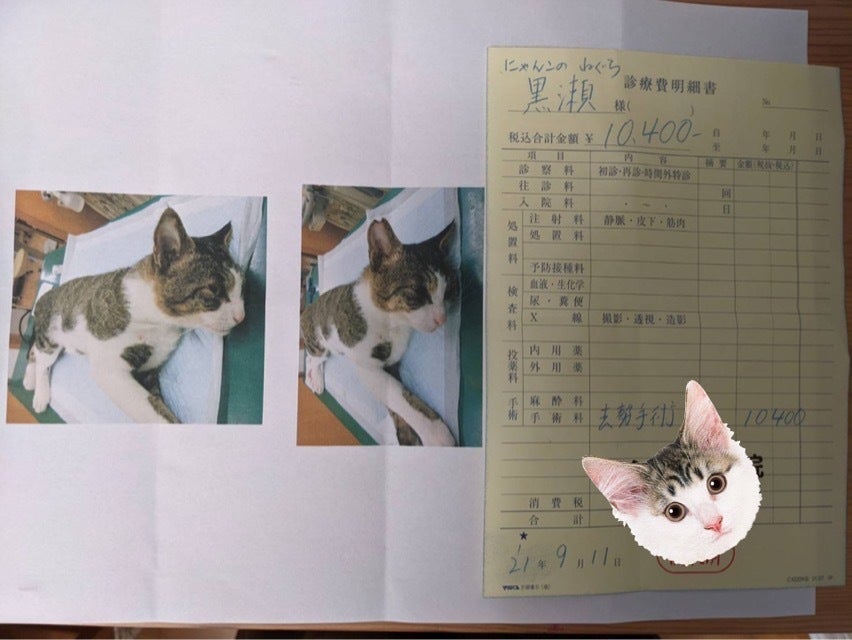 にゃんこの ねぐろ
黒瀬 様( ) 診療費明細書 №
税込合計金額 ¥ 10,400- 自 年 月 日
至 年 月 日
項 目 内 容 摘 要 金額(税抜・税込)
診 察 料 初診・再診・時間外特診
往 診 料 回
入 院 料 ・ ~ ・ 日
処置料 注 射 料 静脈・皮下・筋肉
処 置 料
予防接種料
検査料 血液・生化学
尿・糞便
X 線 撮影・透視・造影
投薬料 内 用 薬
外 用 薬
手術 麻 酔 料
手 術 料 去勢手術 10400
院
消 費 税
合 計
★
'21 年 9 月 11 日